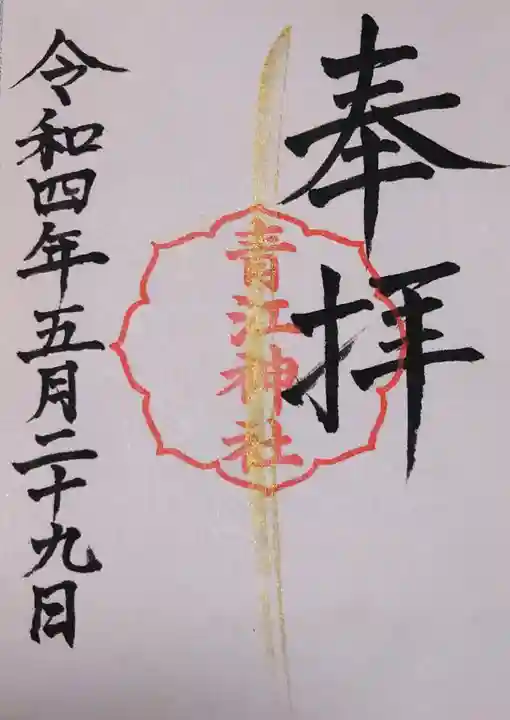 奉拝
青江神社
令和四年五月二十九日